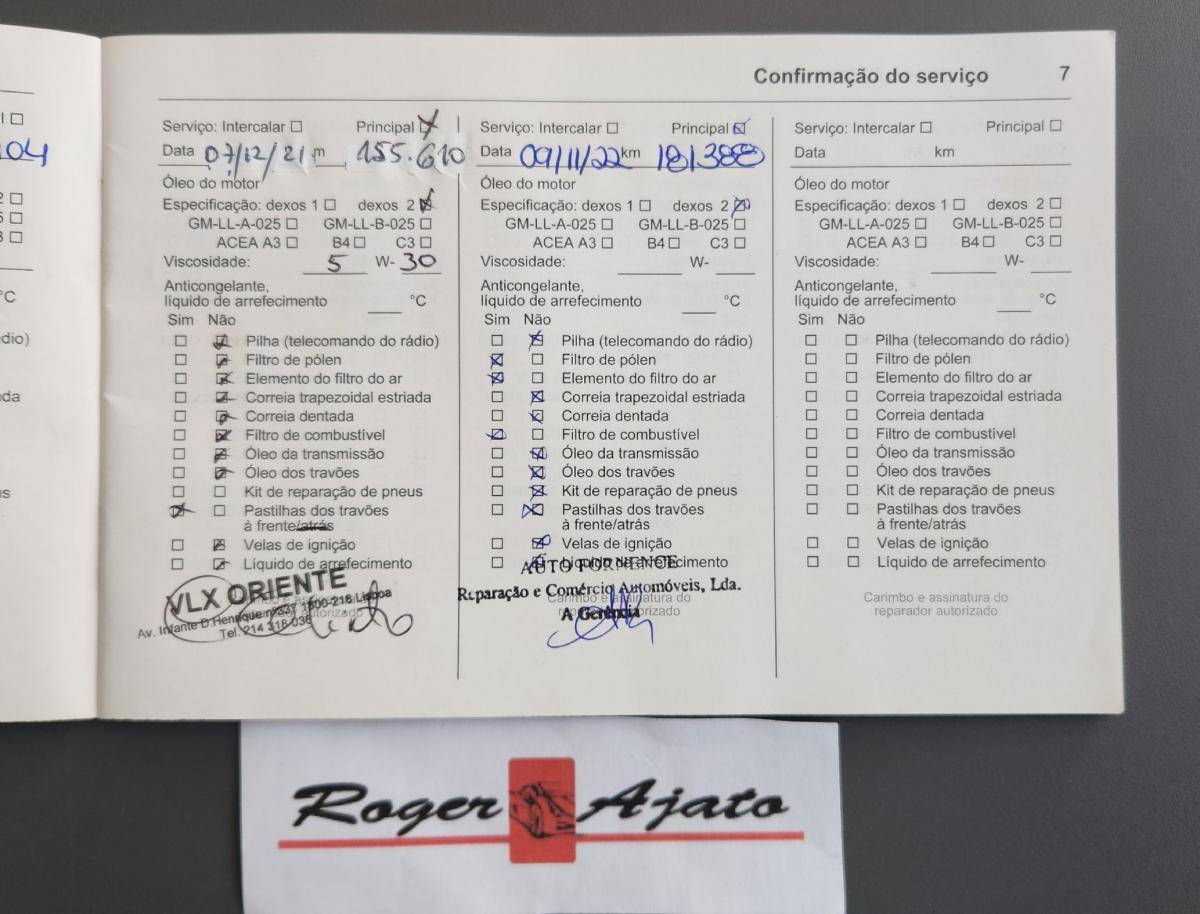 Confirmação do serviço 7
Serviço: Intercalar Principal
Data 07/12/21 m 155.610
Óleo do motor
Especificação: dexos 1 dexos 2
GM-LL-A-025 GM-LL-B-025
ACEA A3 B4 C3
Viscosidade: 5 W- 30
Anticongelante,
líquido de arrefecimento °C
Sim Não
Pilha (telecomando do rádio)
Filtro de pólen
Elemento do filtro do ar
Correia trapezoidal estriada
Correia dentada
Filtro de combustível
Óleo da transmissão
Óleo dos travões
Kit de reparação de pneus
Pastilhas dos travões
à frente/atrás
Velas de ignição
Líquido de arrefecimento
VLX ORIENTE
Av. Infante D.Henrique nº337 1800-218 Lisboa
Tel. 214 318 036
Serviço: Intercalar Principal
Data 09/11/22 km 181388
Óleo do motor
Especificação: dexos 1 dexos 2
GM-LL-A-025 GM-LL-B-025
ACEA A3 B4 C3
Viscosidade: W-
Anticongelante,
líquido de arrefecimento °C
Sim Não
Pilha (telecomando do rádio)
Filtro de pólen
Elemento do filtro do ar
Correia trapezoidal estriada
Correia dentada
Filtro de combustível
Óleo da transmissão
Óleo dos travões
Kit de reparação de pneus
Pastilhas dos travões
à frente/atrás
Velas de ignição
Líquido de arrefecimento
AUTO FORNENSE
Reparação e Comércio Automóveis, Lda.
Carimbo e assinatura do
reparador autorizado
A Gerência
Serviço: Intercalar Principal
Data km
Óleo do motor
Especificação: dexos 1 dexos 2
GM-LL-A-025 GM-LL-B-025
ACEA A3 B4 C3
Viscosidade: W-
Anticongelante,
líquido de arrefecimento °C
Sim Não
Pilha (telecomando do rádio)
Filtro de pólen
Elemento do filtro do ar
Correia trapezoidal estriada
Correia dentada
Filtro de combustível
Óleo da transmissão
Óleo dos travões
Kit de reparação de pneus
Pastilhas dos travões
à frente/atrás
Velas de ignição
Líquido de arrefecimento
Carimbo e assinatura do
reparador autorizado
Roger Ajato